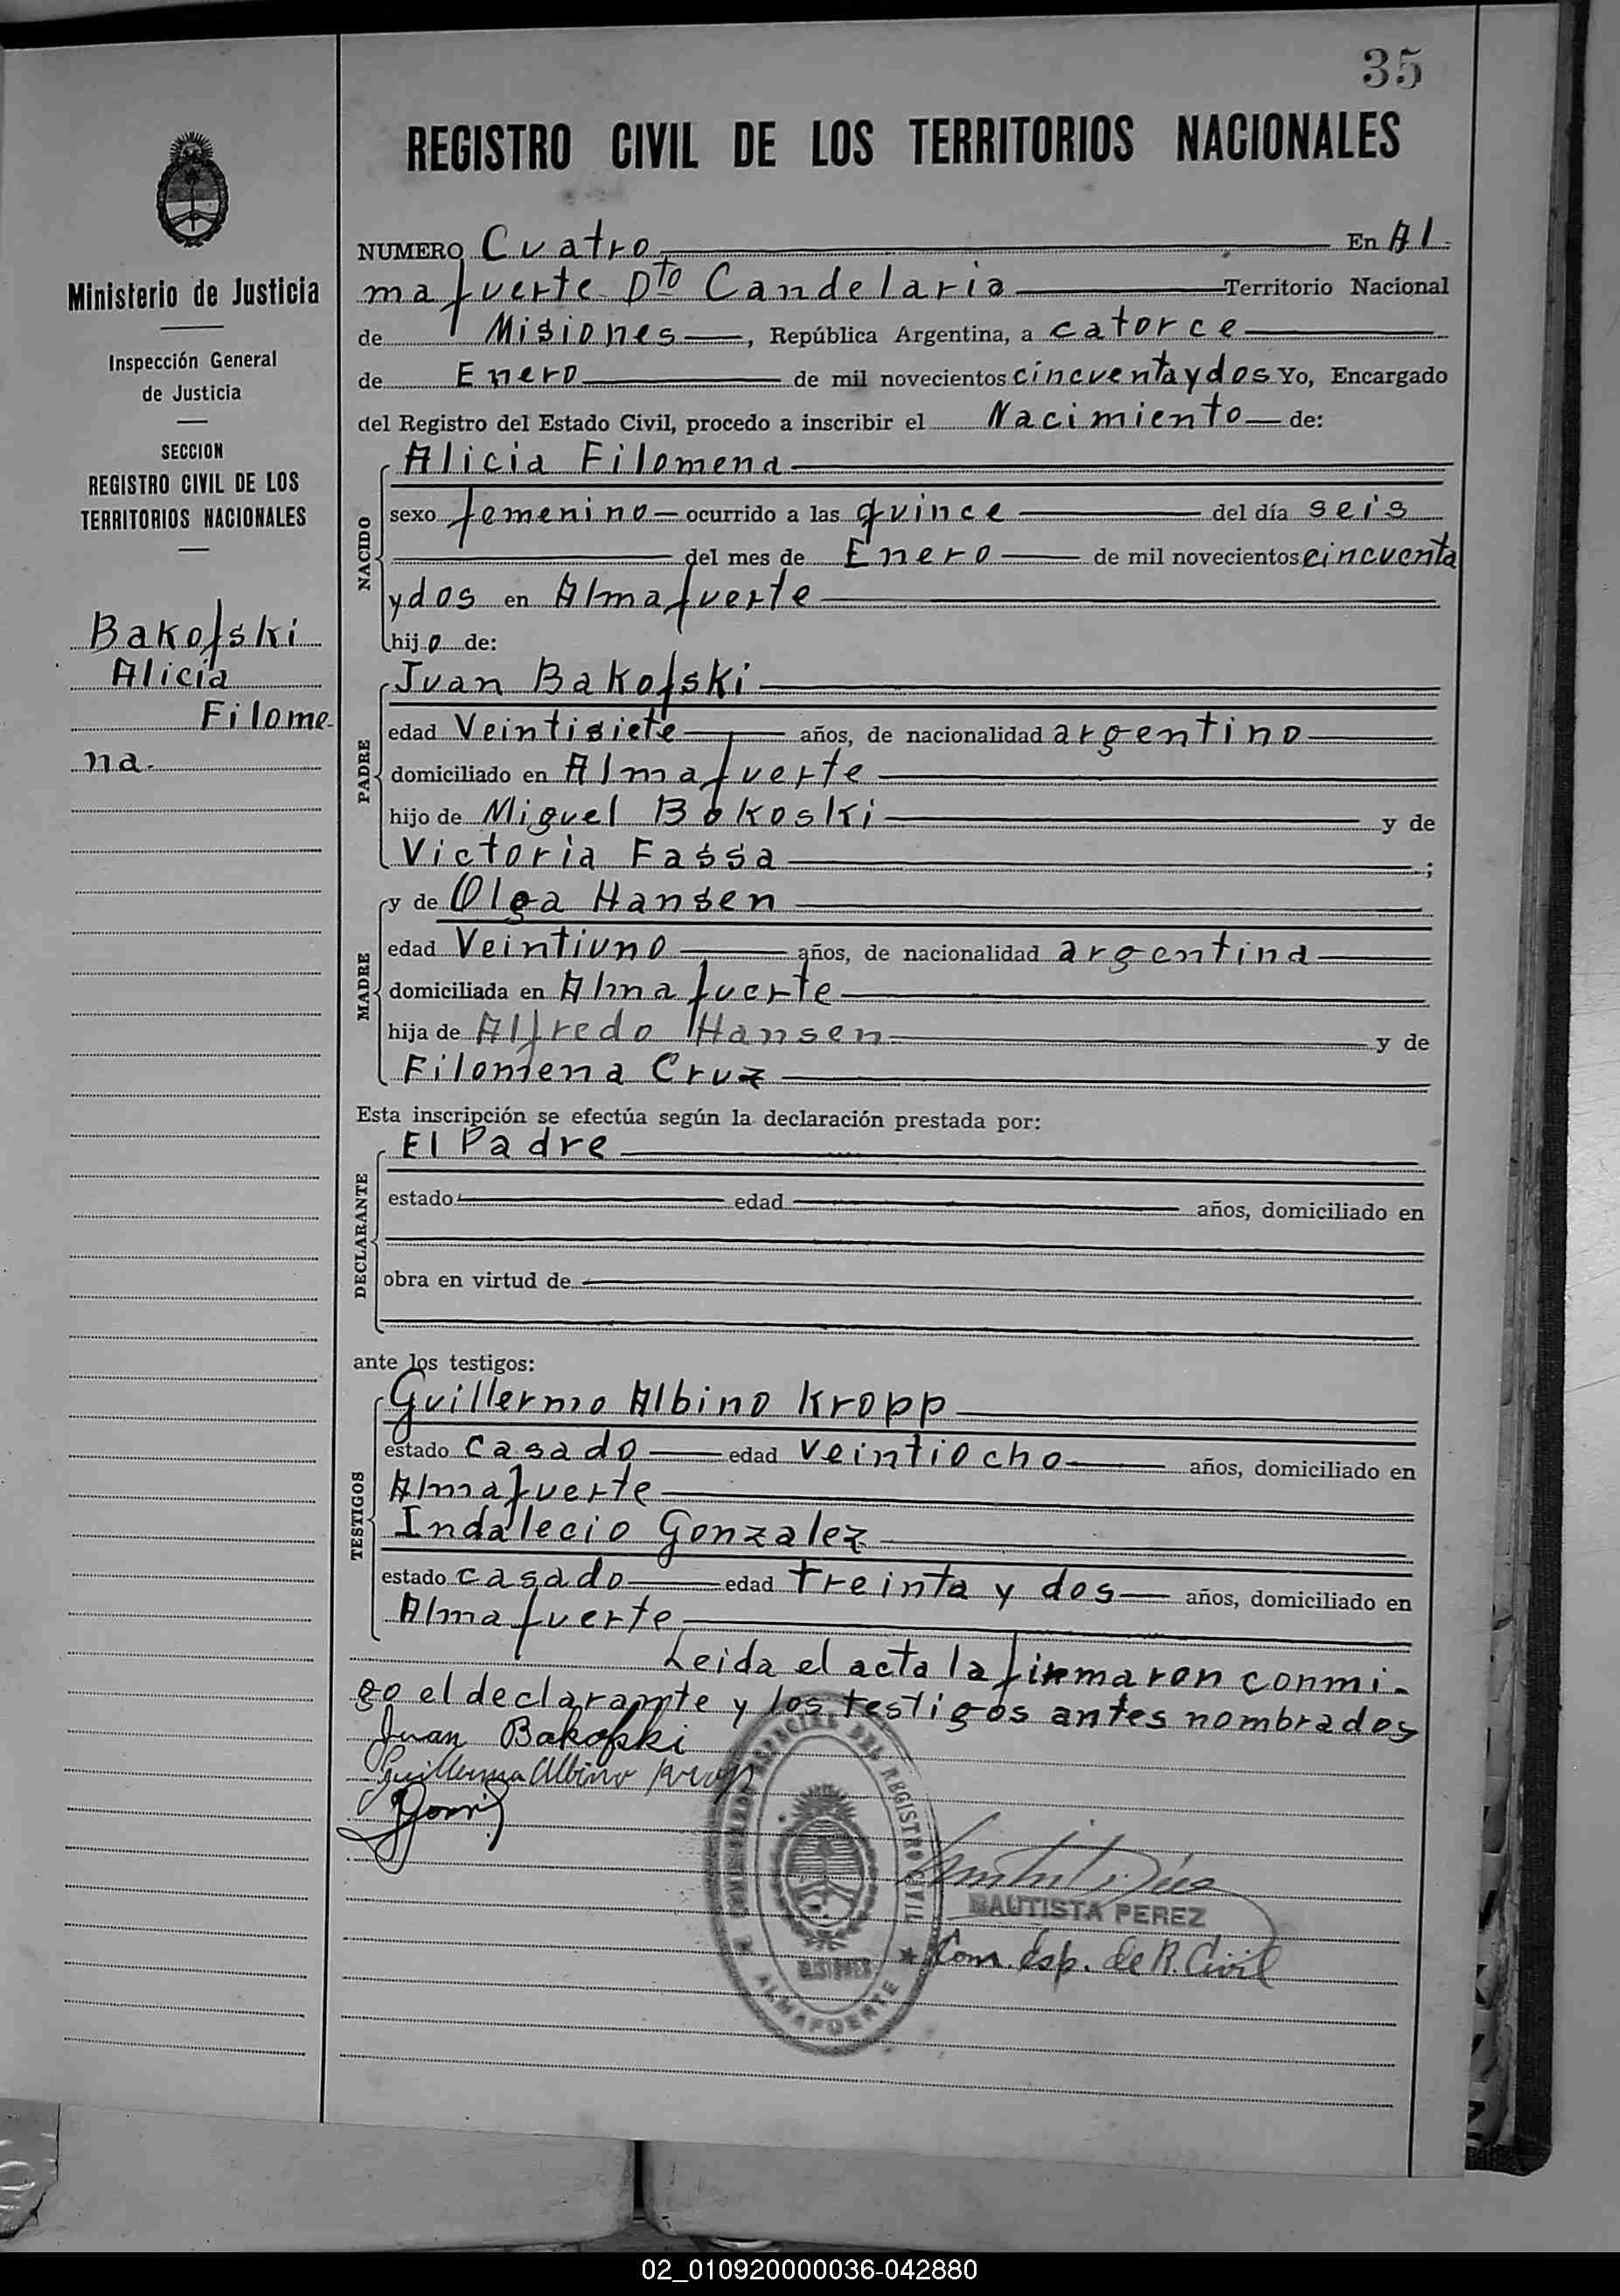 35
REGISTRO CIVIL DE LOS TERRITORIOS NACIONALES
Ministerio de Justicia
Inspección General
de Justicia
SECCION
REGISTRO CIVIL DE LOS
TERRITORIOS NACIONALES
Bakofski
Alicia
Filome-
na.
NUMERO Cuatro En Al-
mafuerte Dto Candelaria Territorio Nacional
de Misiones, República Argentina, a catorce
de Enero de mil novecientos cincuenta y dos Yo, Encargado
del Registro del Estado Civil, procedo a inscribir el Nacimiento de:
NACIDO
Alicia Filomena
sexo femenino ocurrido a las quince del día seis
del mes de Enero de mil novecientos cincuenta
y dos en Almafuerte
hijo de:
PADRE
Juan Bakofski
edad Veintisiete años, de nacionalidad argentino
domiciliado en Almafuerte
hijo de Miguel Bokoski y de
Victoria Fassa ;
MADRE
y de Olga Hansen
edad Veintiuno años, de nacionalidad argentina
domiciliada en Almafuerte
hija de Alfredo Hansen y de
Filomena Cruz
Esta inscripción se efectúa según la declaración prestada por:
DECLARANTE
El Padre
estado edad años, domiciliado en
obra en virtud de
ante los testigos:
TESTIGOS
Guillermo Albino Kropp
estado Casado edad veintiocho años, domiciliado en
Almafuerte
Indalecio Gonzalez
estado casado edad treinta y dos años, domiciliado en
Almafuerte
Leida el acta la firmaron conmi-
go el declarante y los testigos antes nombrados
Juan Bakofski
Guillermo Albino Kropp
ESPECIAL DEL REGISTRO CIVIL
MISIONES
ALMAFUERTE
BAUTISTA PEREZ
Com. Esp. de R. Civil
02_010920000036-042880